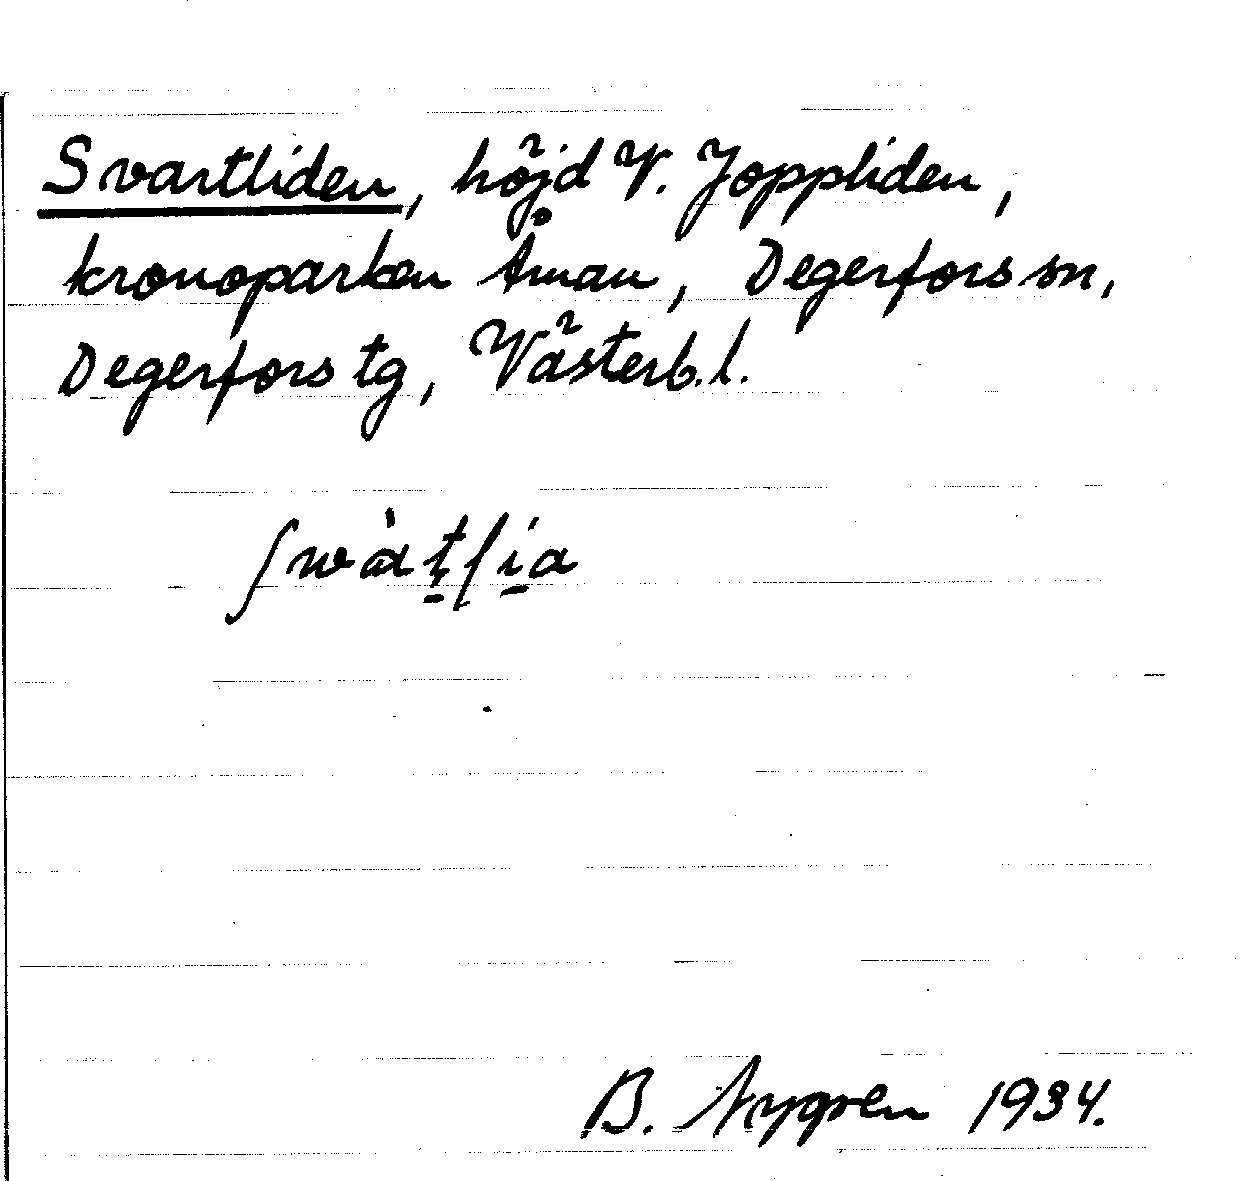 Svartliden, höjd V. Joppliden,
kronoparken Åman, Degerfors sn,
Degerfors tg, Västerb. l.
B. Nygren 1934.